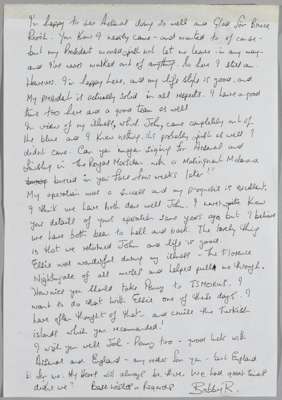 I'm happy to see Arsenal doing so well and Glad for Bruce
Rioch. You know I nearly came - and wanted to of course -
but my President would just not let me leave in any way.
and I've never walked out of anything. So here I still am.
However, I'm happy here, and my life style is good, and
My president is actually solid in all respects. I have a good
time too here and a good team as well
In view of my illness, which, John, came completely out of
the blue and I knew nothing, it's probably just as well I
didn't come. Can you imagine signing for Arsenal and
finishing in the Royal Marsden with a Malignant Melanoma
buried in your face four weeks later!!
My operation was a success and my prognosis is excellent.
I think we have both done well John. I never quite knew
your details of your operation some years ago but I believe
we have both been to hell and back. The lovely thing
is that we returned John and life is good.
Elsie was wonderful during my illness - the Florence
Nightingale of all nurses and helped pull me through.
How nice you should take Penny to Istanbul. I
want to do that with Elsie one of these days. I
have often thought of that - and cruise the Turkish
islands which you recommended!
I wish you well John - Penny too - good luck with
Arsenal and England - my order for you - but England
is for me. My Heart will always be there. We had great times
didn't we? Best wishes & Regards Bobby R.